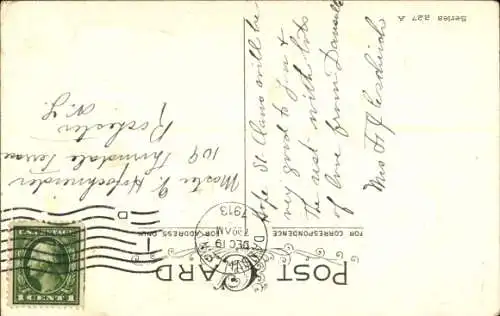 POST CARD
FOR CORRESPONDENCE
FOR ADDRESS ONLY
Hope St Claus will be
very good to you &
the rest with lots
of love from Dansville
Mrs F J
DANSVILLE
DEC 19
7 30 AM
1913
N.Y.
U.S. POSTAGE
1 CENT 1
Master
109 Thorndale Terrace
Rochester
N.Y.
Series 227 A